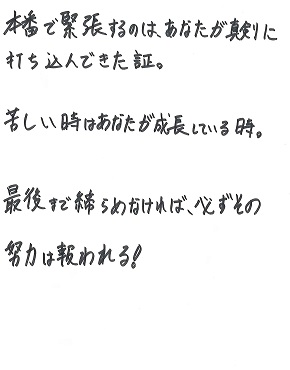 本番で緊張するのは、あなたが真剣に
打ち込んできた証。
苦しい時はあなたが成長している時。
最後まで締らめなければ、必ずその
努力は報われる!